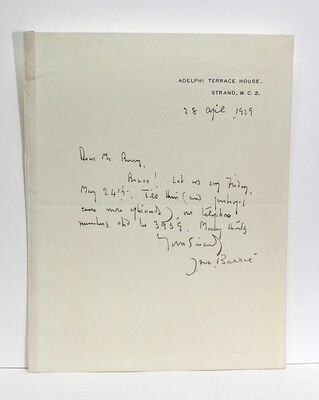 ADELPHI TERRACE HOUSE,
STRAND, W.C. 2.
28 April 1929
Dear Mr
Bravo! Let us say Friday,
May 24th. Till then (and perhaps
even more) our telephone
numbers to 3959. Many thanks
Yours sincerely
J. M. Barrie